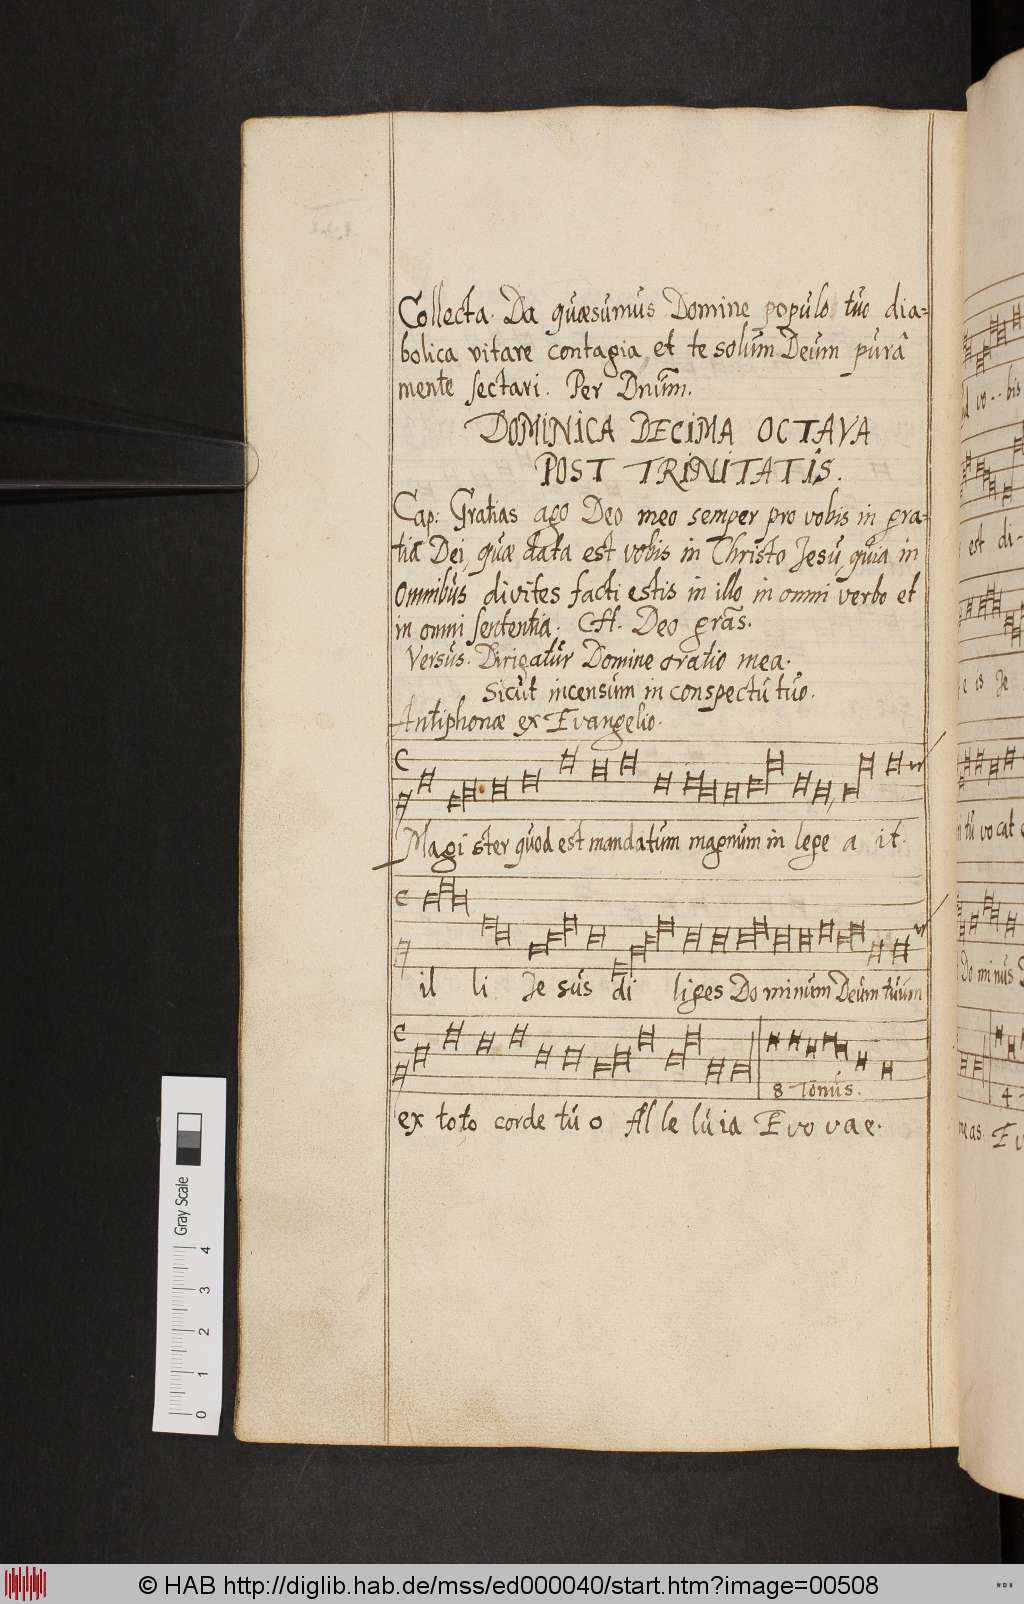 Collecta. Da quæsumus Domine populo tuo dia=
bolica vitare contagia et te solum Deum purâ
mente sectari. Per Dnūm.
DOMINICA DECIMA OCTAVA
POST TRINITATIS.
Cap: Gratias ago Deo meo semper pro vobis in gra=
tia Dei, quæ data est vobis in Christo Jesu, quia in
omnibus divites facti estis in illo in omni verbo et
in omni sententia. Deo grās.
Versus. Dirigatur Domine oratio mea.
Sicut incensum in conspectu tuo.
Antiphonæ ex Evangelio.
Magi ster quod est mandatum magnum in lege a it.
il li Je sus di liges Do minum Deum tuum
8 Tonus.
ex toto corde tu o Al le lu ia E vo vae.
ad vo -- bis
est di -
e is Je
ni tu vo cat
Do mi nus
4
me as. E v
Gray Scale
4
3
2
1
0
© HAB http://diglib.hab.de/mss/ed000040/start.htm?image=00508